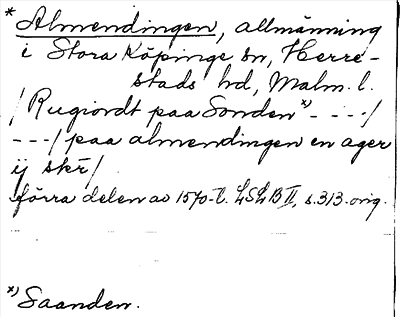 * Almendingen, allmänning
i Stora Köpinge sn, Herre-
stads hd, Malm. l.
/ Rugiordt paa Sonden *) - - - /
- - - / paa almendingen en ager
ij skr̄ /
förra delen av 1570-t. LSLB II, s. 313. orig.
*) Saanden.